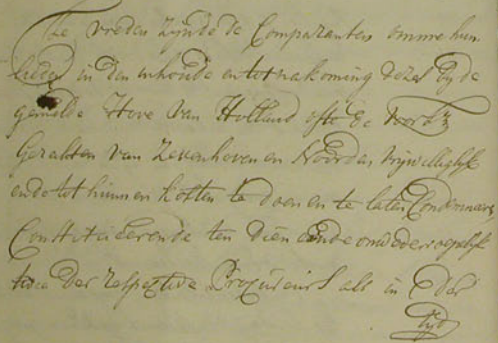 Te vreden zijnde de Comparanten omme hun
lieden in den inhoude en tot nakoming dezes bij de
gemelde Hove van Holland ofte de voorsz
Geregten van Zevenhoven en Noorden vrijwilliglijk
ende tot hunnen kosten te doen en te laten Condemneeren
Constitueerende ten dien einde onwederroepelijk
twee der respective Procureurs als in der
tijd